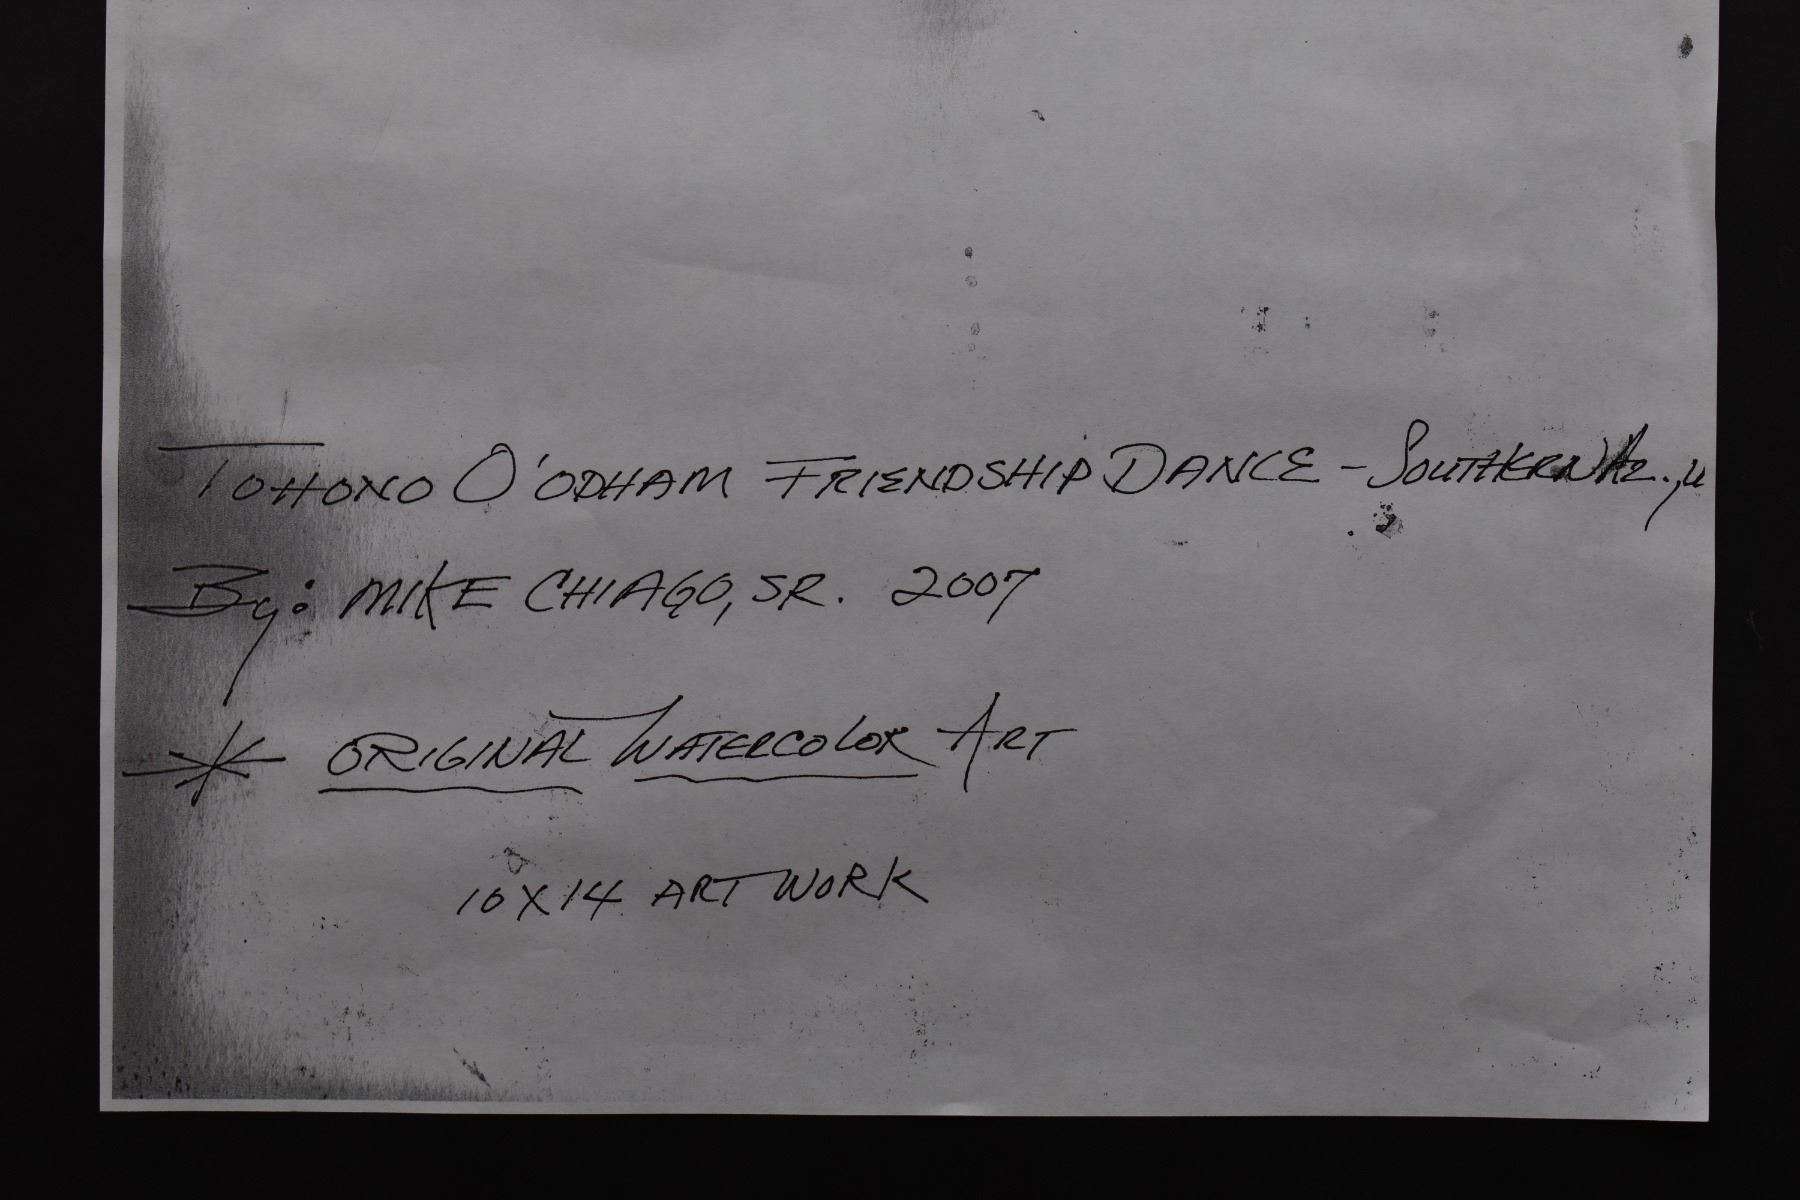 TOHONO O'ODHAM FRIENDSHIP DANCE - SOUTHERN AZ.,
By: MIKE CHIAGO, SR. 2007
* ORIGINAL WATERCOLOR ART
10 X 14 ART WORK